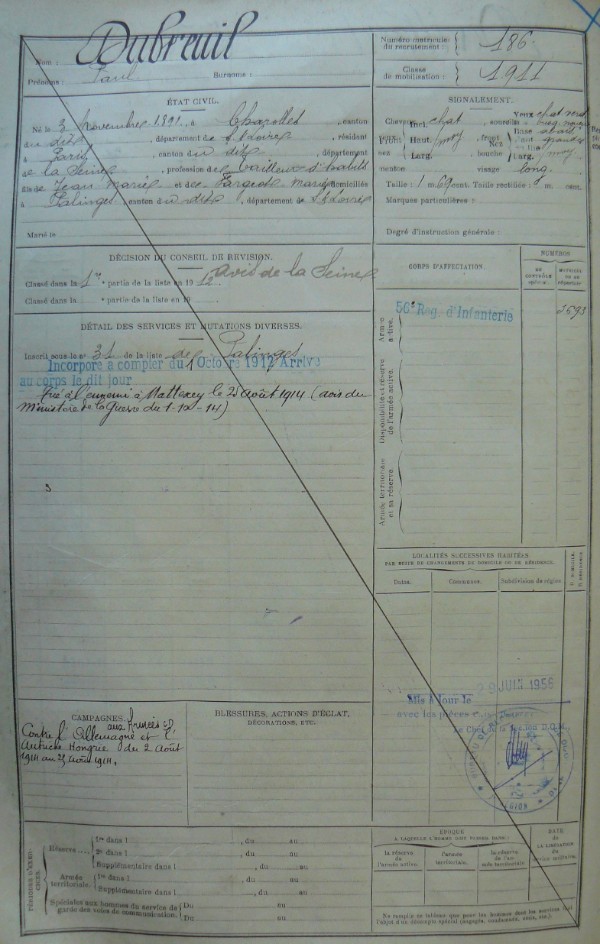 Dubreuil
Nom :
Prénoms : Paul Surnoms :
Numéro matricule du recrutement : 186.
Classe de mobilisation : 1911
ÉTAT CIVIL.
Né le 3 Novembre 1891, à , canton
du dit, département de S. et Loire, résidant
à Paris, canton du dit, département
de la Seine, profession de
fils de Jean Marie et de , domiciliés
à Palinges, canton du dit, département de S. et Loire
Marié le
SIGNALEMENT.
Cheveux chat, sourcils
Yeux chat
front Incl. Haut. moy. Larg. nez
bouche
menton visage long.
Taille : 1 m. 69 cent. Taille rectifiée : 1 m. cent.
Marques particulières :
Degré d'instruction générale :
DÉCISION DU CONSEIL DE RÉVISION.
Classé dans la 1re partie de la liste en 1912 avis de la Seine
Classé dans la e partie de la liste en 19
DÉTAIL DES SERVICES ET MUTATIONS DIVERSES.
Inscrit sous le n° 31 de la liste de Palinges
Incorporé à compter du Octobre 1912 Arrivé
au corps le dit jour
Tué à l'ennemi à Mattexey le 25 Août 1914 (avis du
Ministère de la Guerre du 1-12-14)
CORPS D'AFFECTATION.
NUMÉROS
Armée active.
56e Rég. d'Infanterie
Disponibilité et réserve de l'armée active.
Armée territoriale et sa réserve.
LOCALITÉS SUCCESSIVES HABITÉES
PAR SUITE DE CHANGEMENTS DE DOMICILE OU DE RÉSIDENCE.
Dates. Communes. Subdivision de région
D. DOMICILE. R. RÉSIDENCE.
JUIN 1956
Mis à jour le
avec les pièces
CAMPAGNES.
aux Armées
Contre l'Allemagne et l'
Autriche Hongrie du 2 Août
1914 au 25 Août 1914.
BLESSURES, ACTIONS D'ÉCLAT,
DÉCORATIONS, ETC.
PÉRIODES D'EXERCICES.
Réserve
1re dans l , du au
2e dans l , du au
Supplémentaire dans l , du au
Armée territoriale.
1re dans l , du au
Supplémentaire dans l , du au
Spéciales aux hommes du service de
garde des voies de communication.
Du au
Du au
ÉPOQUE
À LAQUELLE L'HOMME DOIT PASSER DANS :
la réserve de l'armée active.
l'armée territoriale.
la réserve de l'armée territoriale
DATE
DE LA LIBÉRATION
du service militaire.